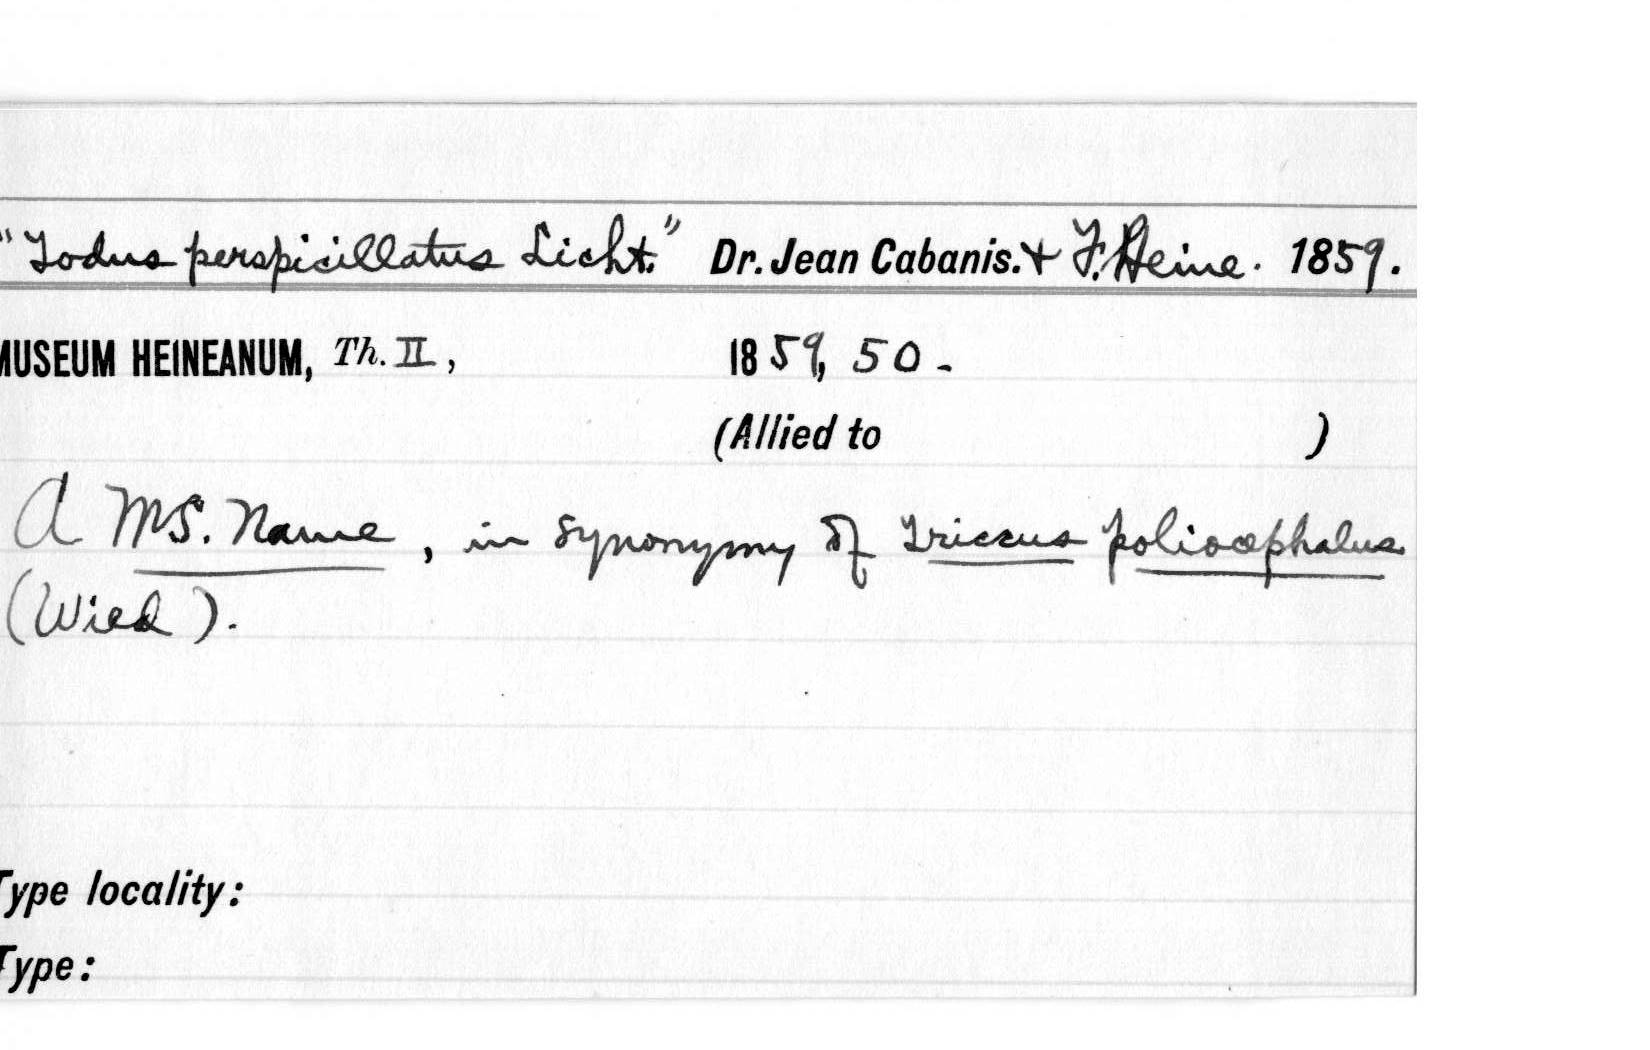 "Todus perspicillatus Licht." Dr. Jean Cabanis. + F. Heine. 1859.
MUSEUM HEINEANUM, Th. II, 1859, 50-
(Allied to )
A MS. Name, in synonymy of Triccus poliocephalus
(Wied).
Type locality:
Type: